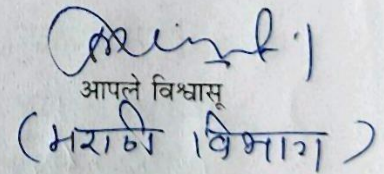 आपले विश्वासू
(मराठी विभाग)